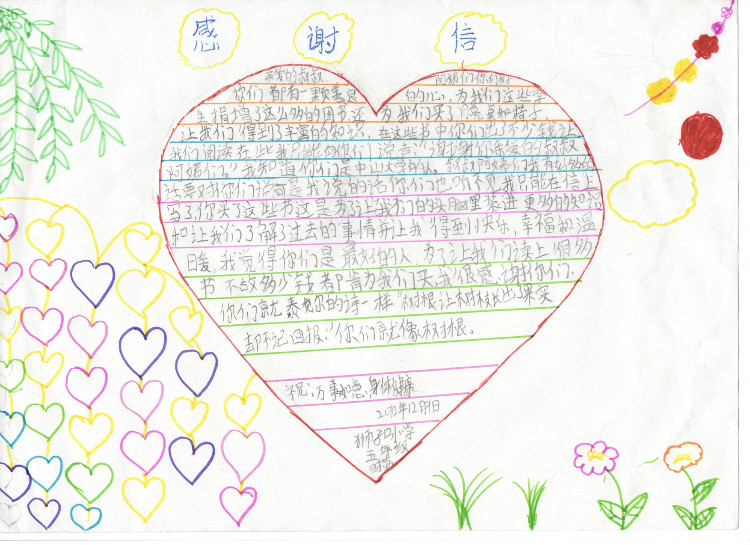 感谢信
亲爱的叔叔 阿姨们你们好
你们都有一颗善良的心，为我们这些学
生捐增了这么多的图书还为我们买了
让我们得到了丰富的知识，在这些书中你们出了不少钱让
我们阅读在些我能向你们说
阿姨们。我知道你们是中山大学的人。
还要对你们说 我说的话你们也听不见我只能在信上
当了你买了这些书这是为了让我们的头脑里装进更多的知识
和让我们了解了过去的事情并让我得到快乐，幸福和温
暖。我觉得你们是最好的人，为了让我们读上很多
书 不故多少钱都肯为我们买，我很感谢你们.
你们就像泰戈尔的诗一样“树根让树枝出果实
却不记回报。”你们就像树根。
祝：万事如意，身体健康
2012年12月1日
狮子口小学
五年级